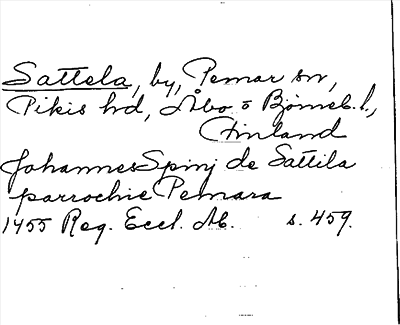 Sattela, by, Pemar sn,
Pikis hd, Åbo o Björneb. l.,
Finland
Johannes Spinj de Sattila
parrochie Pemara
1455 Reg. Eccl. Ab. s. 459.